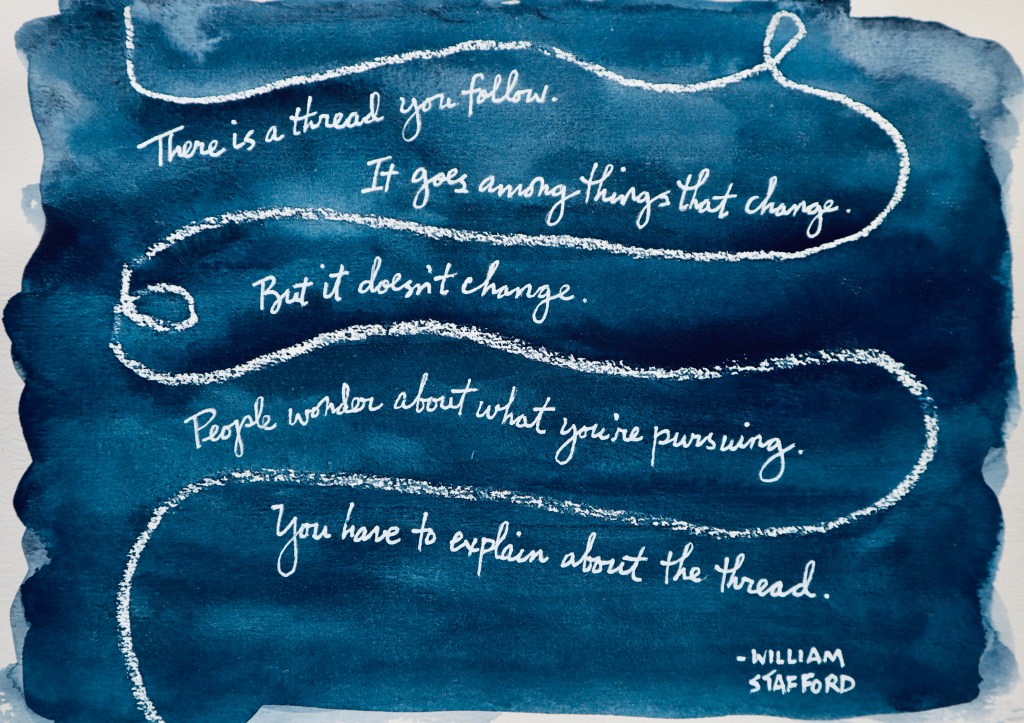 There is a thread you follow.
It goes among things that change.
But it doesn't change.
People wonder about what you're pursuing.
You have to explain about the thread.
-WILLIAM
STAFFORD